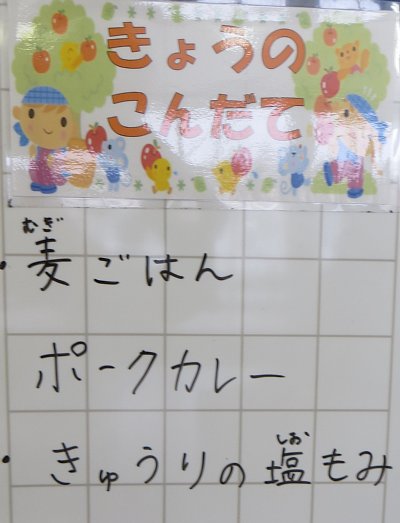 きょうの
こんだて
むぎ
・麦ごはん
ポークカレー
しお
・きゅうりの塩もみ